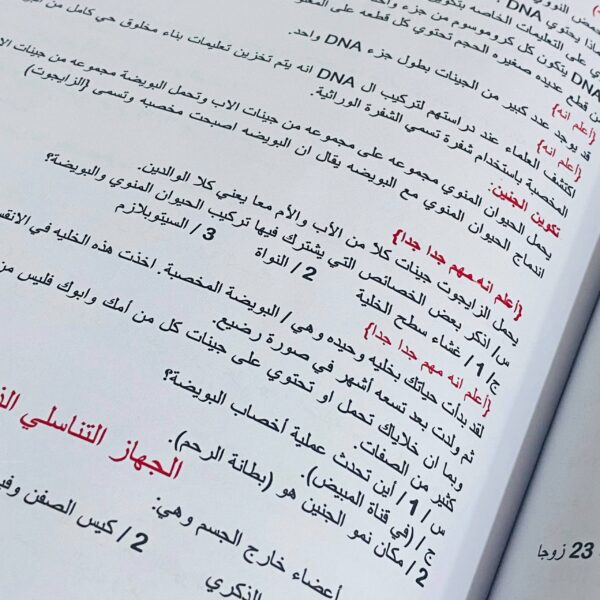 ماذا يحتوي DNA
على التعليمات الخاصه بتكوين
DNA يتكون كل كروموسوم من جزء واحد
من قطع عديده صغيره الحجم تحتوي كل قطعه على
{أعلم انه}
قد يوجد عدد كبير من الجينات بطول جزء DNA واحد.
{أعلم انه}
اكتشف العلماء عند دراستهم لتركيب ال DNA انه يتم تخزين تعليمات بناء مخلوق حي كامل من
المخصبة باستخدام شفرة تسمى الشفرة الوراثية.
تكوين الجنين:
يحمل الحيوان المنوي مجموعه على مجموعه من جينات الاب وتحمل البويضة مجموعه من جينات
اندماج الحيوان المنوي مع البويضه يقال ان البويضه اصبحت مخصبه وتسمى {الزايجوت}
{أعلم انه مهم جدا جدا}
يحمل الزايجوت جينات كلا من الأب والأم معا يعني كلا الوالدين.
س/ اذكر بعض الخصائص التي يشترك فيها تركيب الحيوان المنوي والبويضة؟
ج/ 1/ غشاء سطح الخلية 2/ النواة 3/ السيتوبلازم
{أعلم انه مهم جدا جدا}
لقد بدأت حياتك بخليه وحيده وهي/ البويضة المخصبة. اخذت هذه الخليه في
ثم ولدت بعد تسعه أشهر في صورة رضيع.
وبما ان خلاياك تحمل او تحتوي على جينات كل من أمك وابوك فليس من
كثير من الصفات.
س/ 1/ أين تحدث عملية أخصاب البويضة؟
ج/ (في قناة المبيض).
2/ مكان نمو الجنين هو (بطانة الرحم).
الجهاز التناسلي
أعضاء خارج الجسم وهي:
2/ كيس الصفن
الذكري
23 زوجا